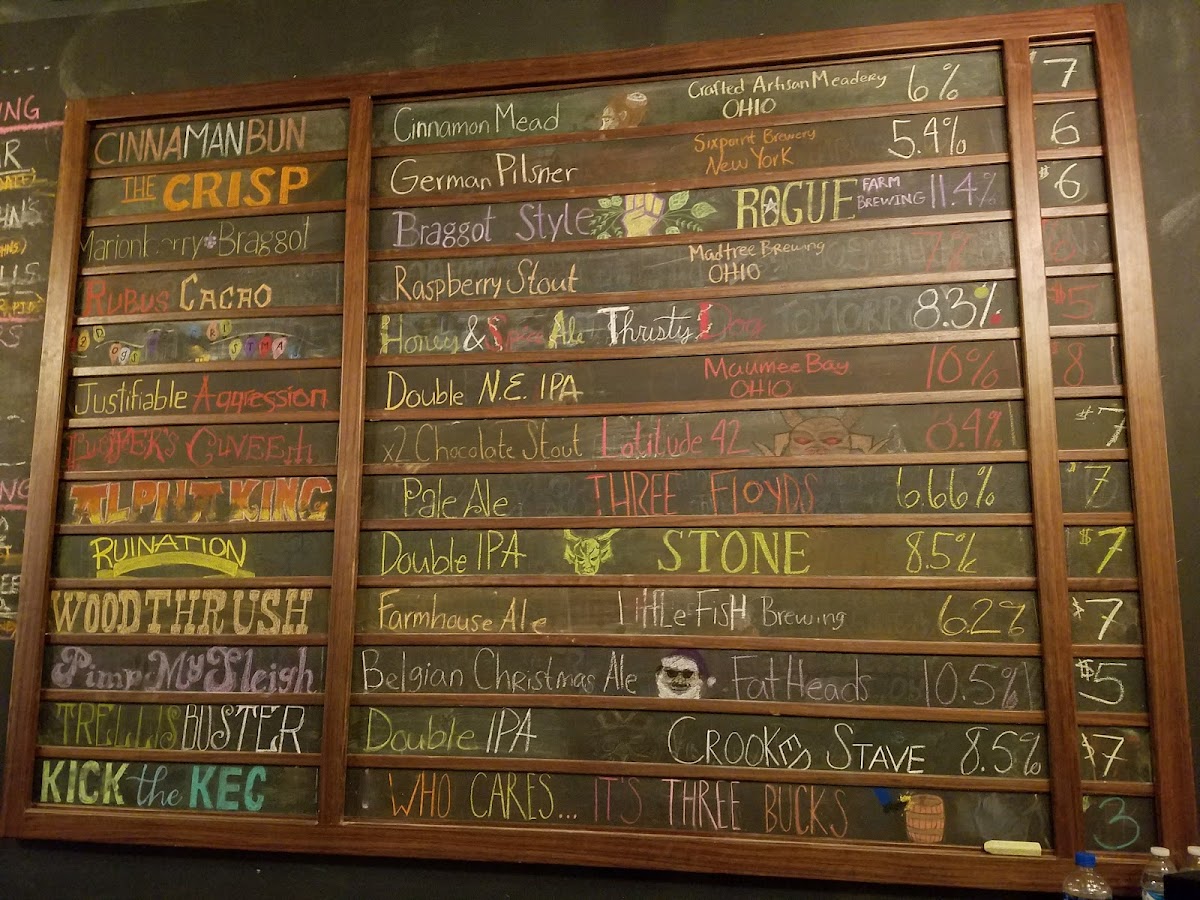 ING
CINNAMANBUN Cinnamon Mead Crafted Artisan Meadery OHIO 6% 7
THE CRISP German Pilsner Sixpoint Brewery New York 5.4% 6
Marionberry Braggot Braggot Style ROGUE FARM BREWING 11.4% $6
RUBUS CACAO Raspberry Stout Madtree Brewing OHIO 7%
Honey & Spice Ale Thristy Dog TOMORR 8.3% $5
Justifiable Aggression Double N.E. IPA Maumee Bay OHIO 10% 8
x2 Chocolate Stout Latitude 42 $7
Pale Ale THREE FLOYDS 6.66% 7
RUINATION Double IPA STONE 8.5% $7
WOODTHRUSH Farmhouse Ale Little Fish Brewing 6.2% $7
Pimp My Sleigh Belgian Christmas Ale Fat Heads 10.5% $5
TRELLIS BUSTER Double IPA CROOKED STAVE 8.5% $7
KICK the KEG WHO CARES... IT'S THREE BUCKS 3